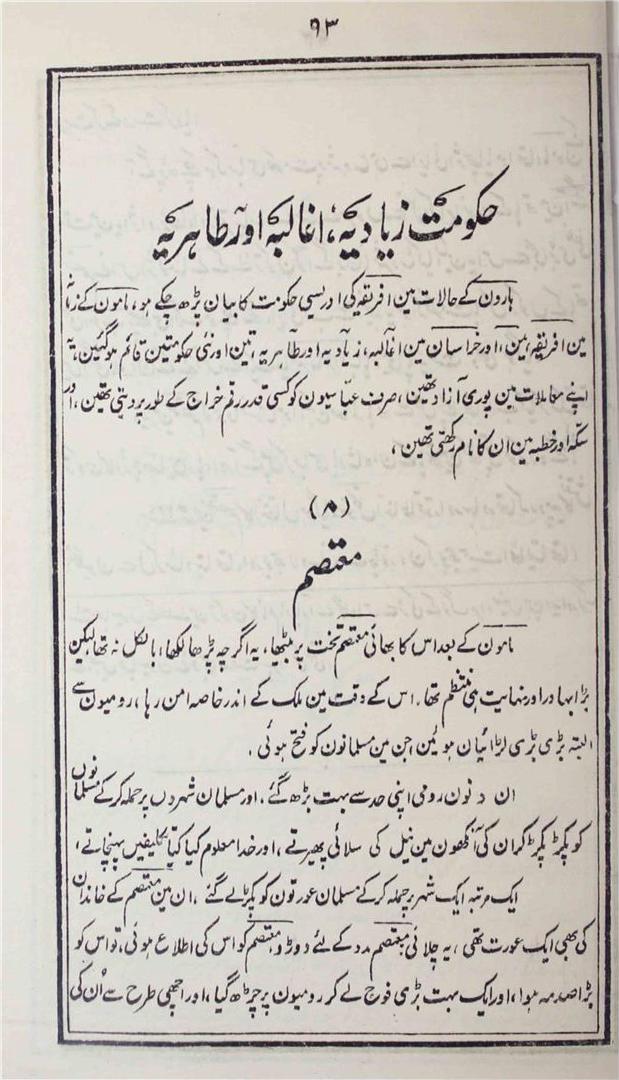 ۹۳
حکومت زیادیہ، اغالبہ اور طاہریہ
ہارون کے حالات مین افریقہ کی ادریسی حکومت کا بیان پڑھ چکے ہو، مامون کے زمانہ
مین افریقہ، یمن، اور خراسان مین اغالبہ، زیادیہ اور طاہریہ، تین اور نئی حکومتین قائم ہوگئین، یہ
اپنے معاملات مین پوری آزاد تھین، صرف عباسیون کو کسی قدر رقم خراج کے طور پر دیتی تھین، اور
سکہ اور خطبہ مین ان کا نام رکھتی تھین،
(۸)
معتصم
مامون کے بعد اس کا بھائی معتصم تخت پر بیٹھا، یہ اگرچہ پڑھا لکھا، بالکل نہ تھا، لیکن
بڑا بہادر اور نہایت ہی منتظم تھا، اس کے وقت مین ملک کے اندر خاصہ امن رہا، رومیون سے
البتہ بڑی بڑی لڑائیان ہوئین جن مین مسلمانون کو فتح ہوئی،
ان دنون رومی اپنی حد سے بہت بڑھ گئے، اور مسلمان شہرون پر حملہ کرکے مسلمانون
کو پکڑ پکڑ کر ان کی آنکھون مین نیل کی سلائی پھیرتے، اور خدا معلوم کیا کیا تکلیفین پہنچاتے،
ایک مرتبہ ایک شہر پر حملہ کرکے مسلمان عورتون کو پکڑ لے گئے، ان مین معتصم کے خاندان
کی بھی ایک عورت تھی، یہ چلائی معتصم مدد کے لئے دوڑو، معتصم کو اس کی اطلاع ہوئی، تو اس کو
بڑا صدمہ ہوا، اور ایک بہت بڑی فوج لے کر رومیون پر چڑھ گیا، اور اچھی طرح سے اُن کی